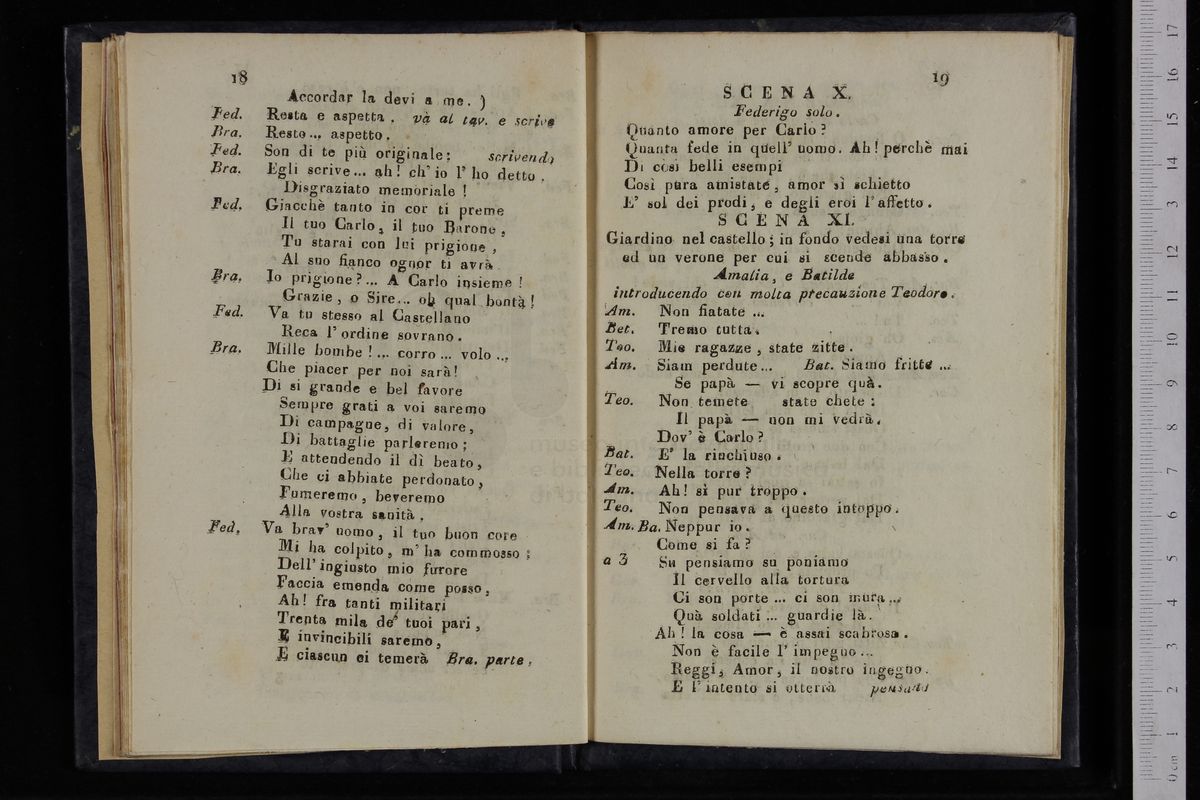 18
Accordar la devi a me. )
Fed. Resta e aspetta. và al tav. e scrive
Bra. Resto... aspetto.
Fed. Son di te più originale; scrivendo
Bra. Egli scrive... ah! ch' io l' ho detto,
Disgraziato memoriale !
Fed. Giacchè tanto in cor ti preme
Il tuo Carlo, il tuo Barone,
Tu starai con lui prigione,
Al suo fianco ognor ti avrà.
Bra. Io prigione?... A Carlo insieme !
Grazie, o Sire... oh qual bontà!
Fed. Va tu stesso al Castellano
Reca l' ordine sovrano.
Bra. Mille bombe !... corro... volo...
Che piacer per noi sarà!
Di si grande e bel favore
Sempre grati a voi saremo
Di campagne, di valore,
Di battaglie parleremo;
E attendendo il dì beato,
Che ci abbiate perdonato,
Fumeremo, beveremo
Alla vostra sanità.
Fed. Va brav' uomo, il tuo buon core
Mi ha colpito, m' ha commosso;
Dell' ingiusto mio furore
Faccia emenda come posso,
Ah! fra tanti militari
Trenta mila de' tuoi pari,
E invincibili saremo,
E ciascun ci temerà Bra. parte.
19
SCENA X.
Federigo solo.
Quanto amore per Carlo?
Quanta fede in quell' uomo. Ah! perchè mai
Di così belli esempi
Così pura amistate, amor sì schietto
E' sol dei prodi, e degli eroi l'affetto.
SCENA XI.
Giardino nel castello; in fondo vedesi una torre
ed un verone per cui si scende abbasso.
Amalia, e Batilde
introducendo con molta precauzione Teodoro.
Am. Non fiatate...
Bet. Tremo tutta.
Teo. Mie ragazze, state zitte.
Am. Siam perdute... Bat. Siamo fritte...
Se papà — vi scopre quà.
Teo. Non temete state chete:
Il papà — non mi vedrà.
Dov' è Carlo?
Bat. E' la rinchiuso.
Teo. Nella torre?
Am. Ah! sì pur troppo.
Teo. Non pensava a questo intoppo.
Am. Ba. Neppur io.
Come si fa?
a 3 Su pensiamo su poniamo
Il cervello alla tortura
Ci son porte... ci son mura...
Quà soldati... guardie là.
Ah! la cosa — è assai scabrosa.
Non è facile l' impegno...
Reggi, Amor, il nostro ingegno.
E l' intento si otterrà
0 cm 1 2 3 4 5 6 7 8 9 10 11 12 13 14 15 16 17